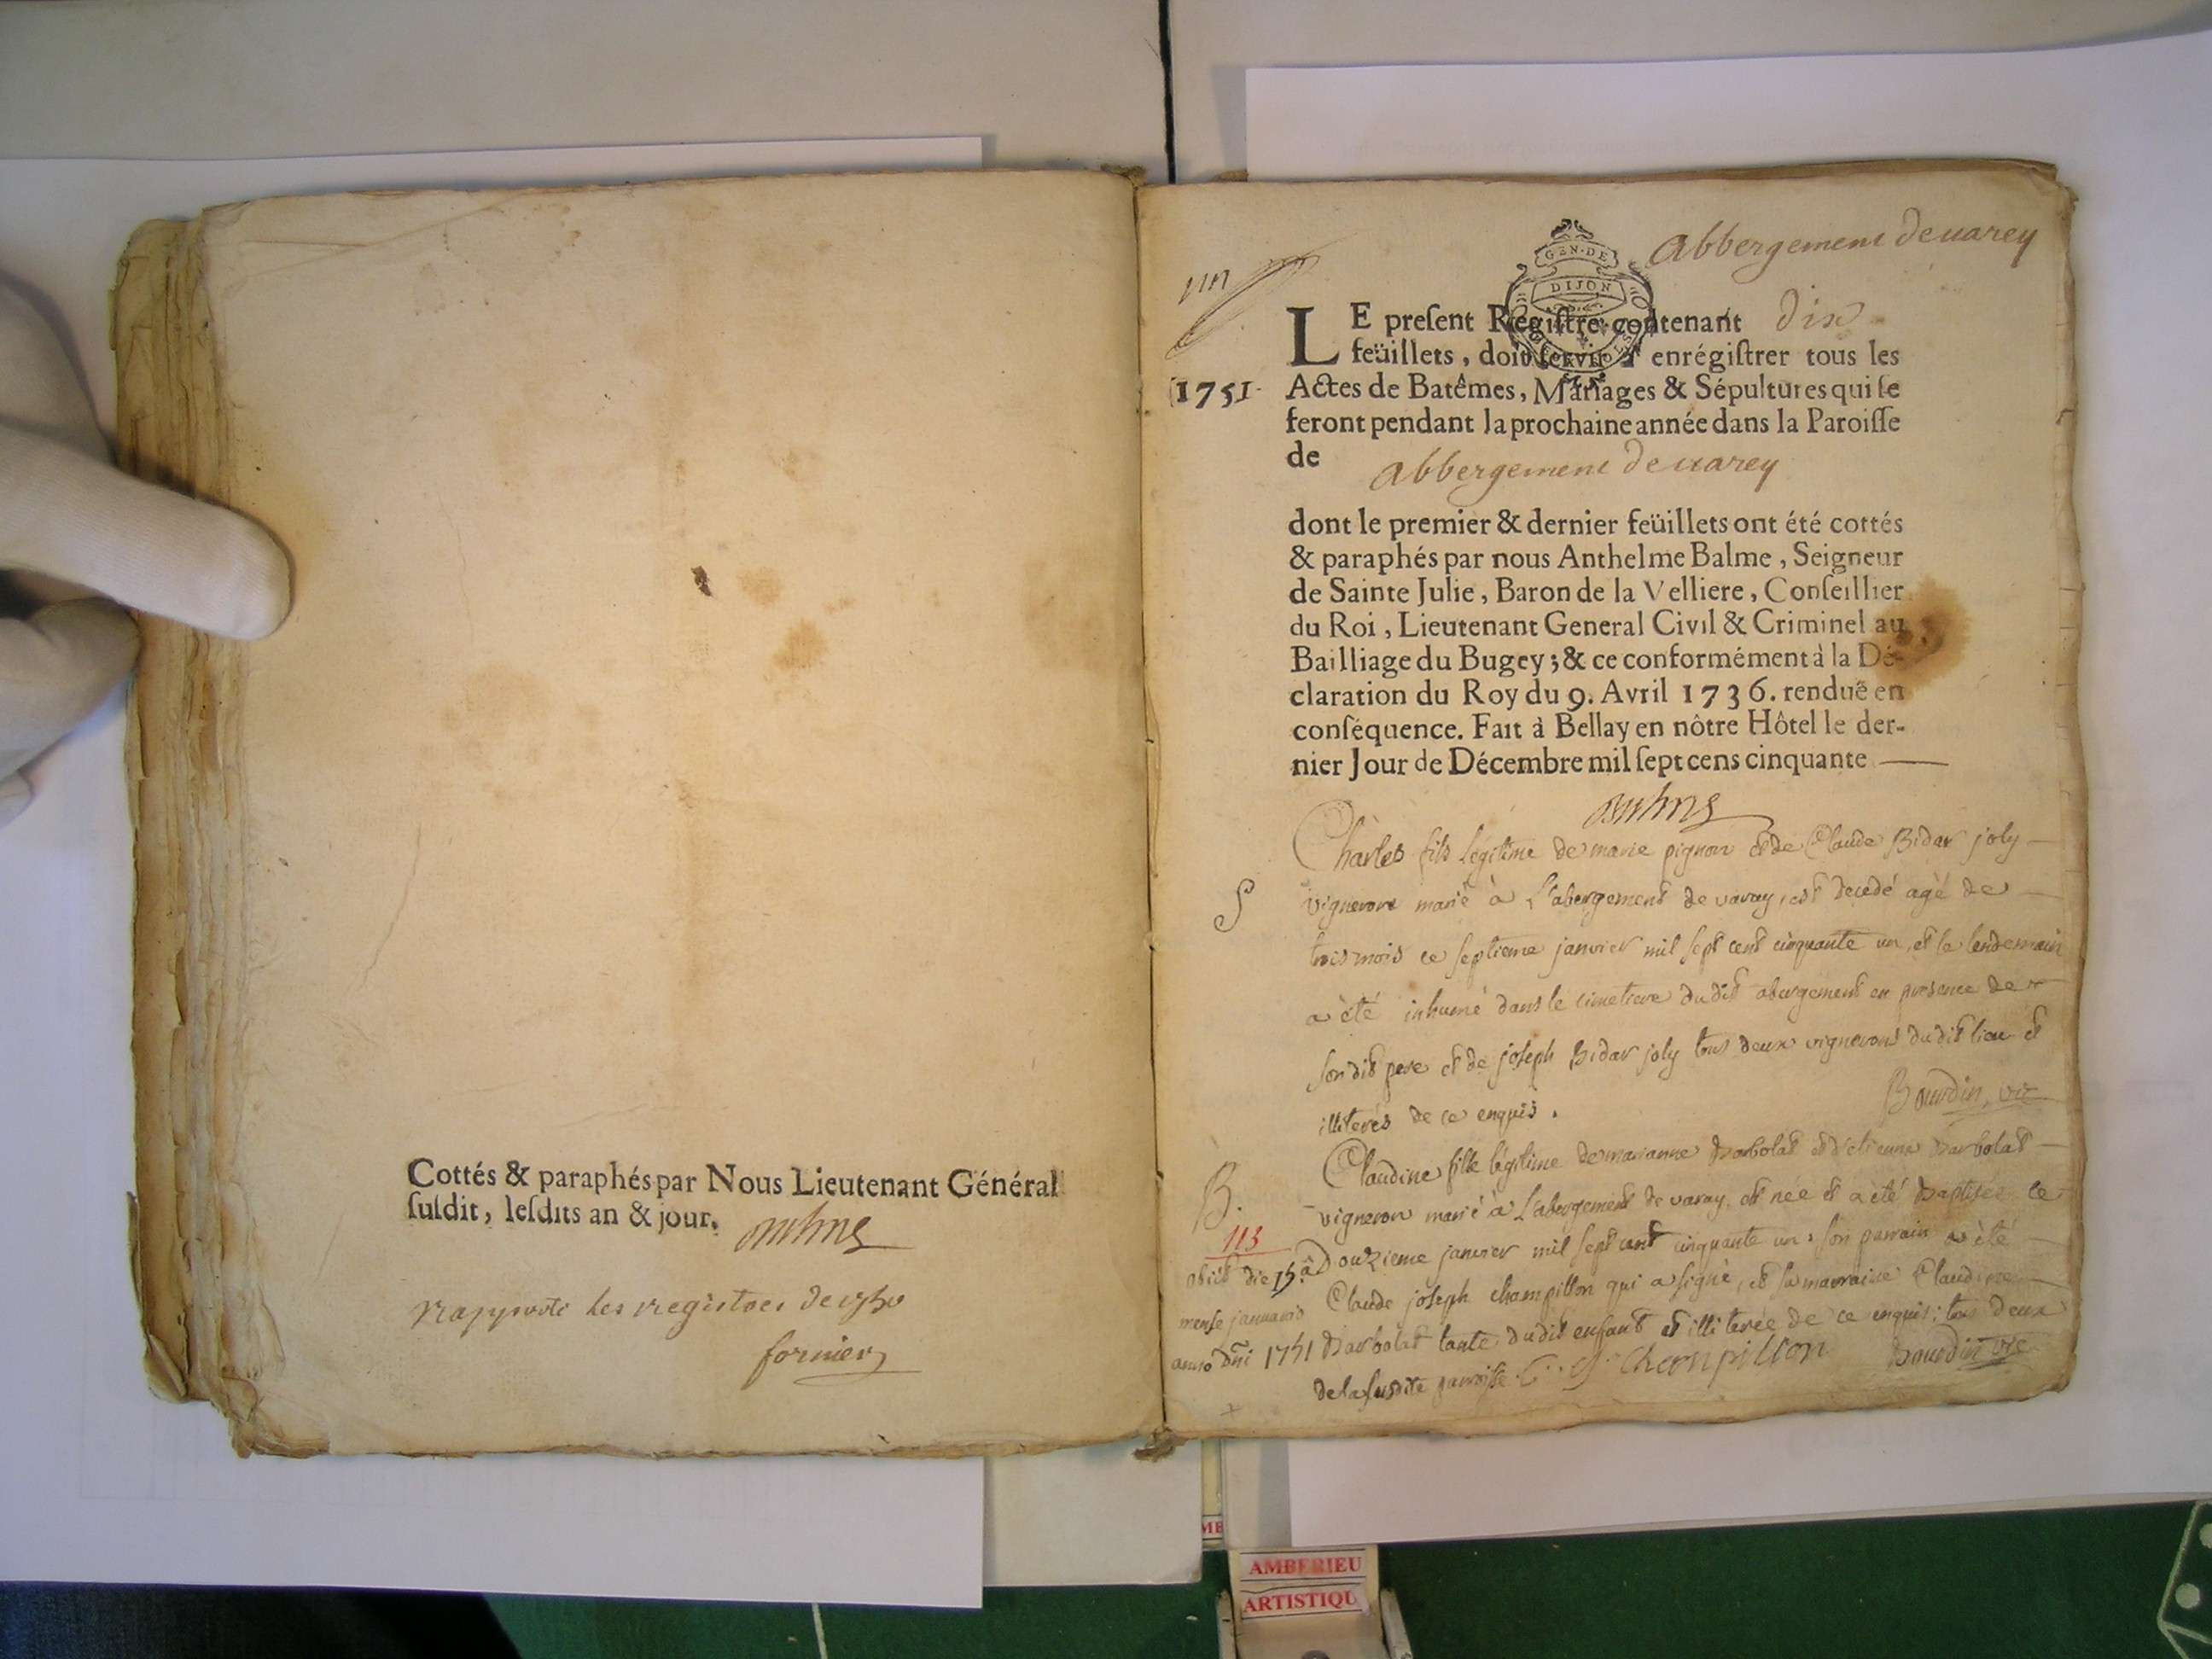 Cottés & paraphés par Nous Lieutenant Général
ſuſdit, leſdits an & jour.
rapporté les registres de 1750
fornier
un
Abbergement de uarey
GEN·DE
DIJON
LE preſent Regiſtre contenant dix
feüillets, doit ſervir à enrégiſtrer tous les
1751
Actes de Batêmes, Mariages & Sépultures qui ſe
feront pendant la prochaine année dans la Paroiſſe
de Abbergement de uarey
dont le premier & dernier feüillets ont été cottés
& paraphés par nous Anthelme Balme, Seigneur
de Sainte Julie, Baron de la Velliere, Conſeillier
du Roi, Lieutenant General Civil & Criminel au
Bailliage du Bugey; & ce conformément à la Dé-
claration du Roy du 9. Avril 1736. renduë en
conſéquence. Fait à Bellay en nôtre Hôtel le der-
nier Jour de Décembre mil ſept cens cinquante
Charles fils légitime de marie pignon et de Claude Bidar joly
S
vigneron marié à L'abergement de varay, est decedé agé de
trois mois ce septieme janvier mil sept cent cinquante un, et le lendemain
a èté inhumé dans le cimetiere dudit abergement en presence de
son dit pere et de joseph Bidar joly tous deux vignerons dudit lieu et
illiterés de ce enquis.
Bourdin, vic
Claudine fille légitime de marianne Barbolat et d'etienne Barbolat
B.
vigneron marié à L'abergement de varay, est née et a èté Baptisée le
113
Douzieme janvier mil sept cent cinquante un, son parrain a èté
obiit die 15a
Claude joseph champillon qui a signé, et sa marraine Claudine
mense januario
Barbolat tante dudit enfant et illiterée de ce enquis; tous deux
anno Dni 1751
de la susdite paroisse. C. J. Chempillon Bourdin vic
AMBERIEU
ARTISTIQU